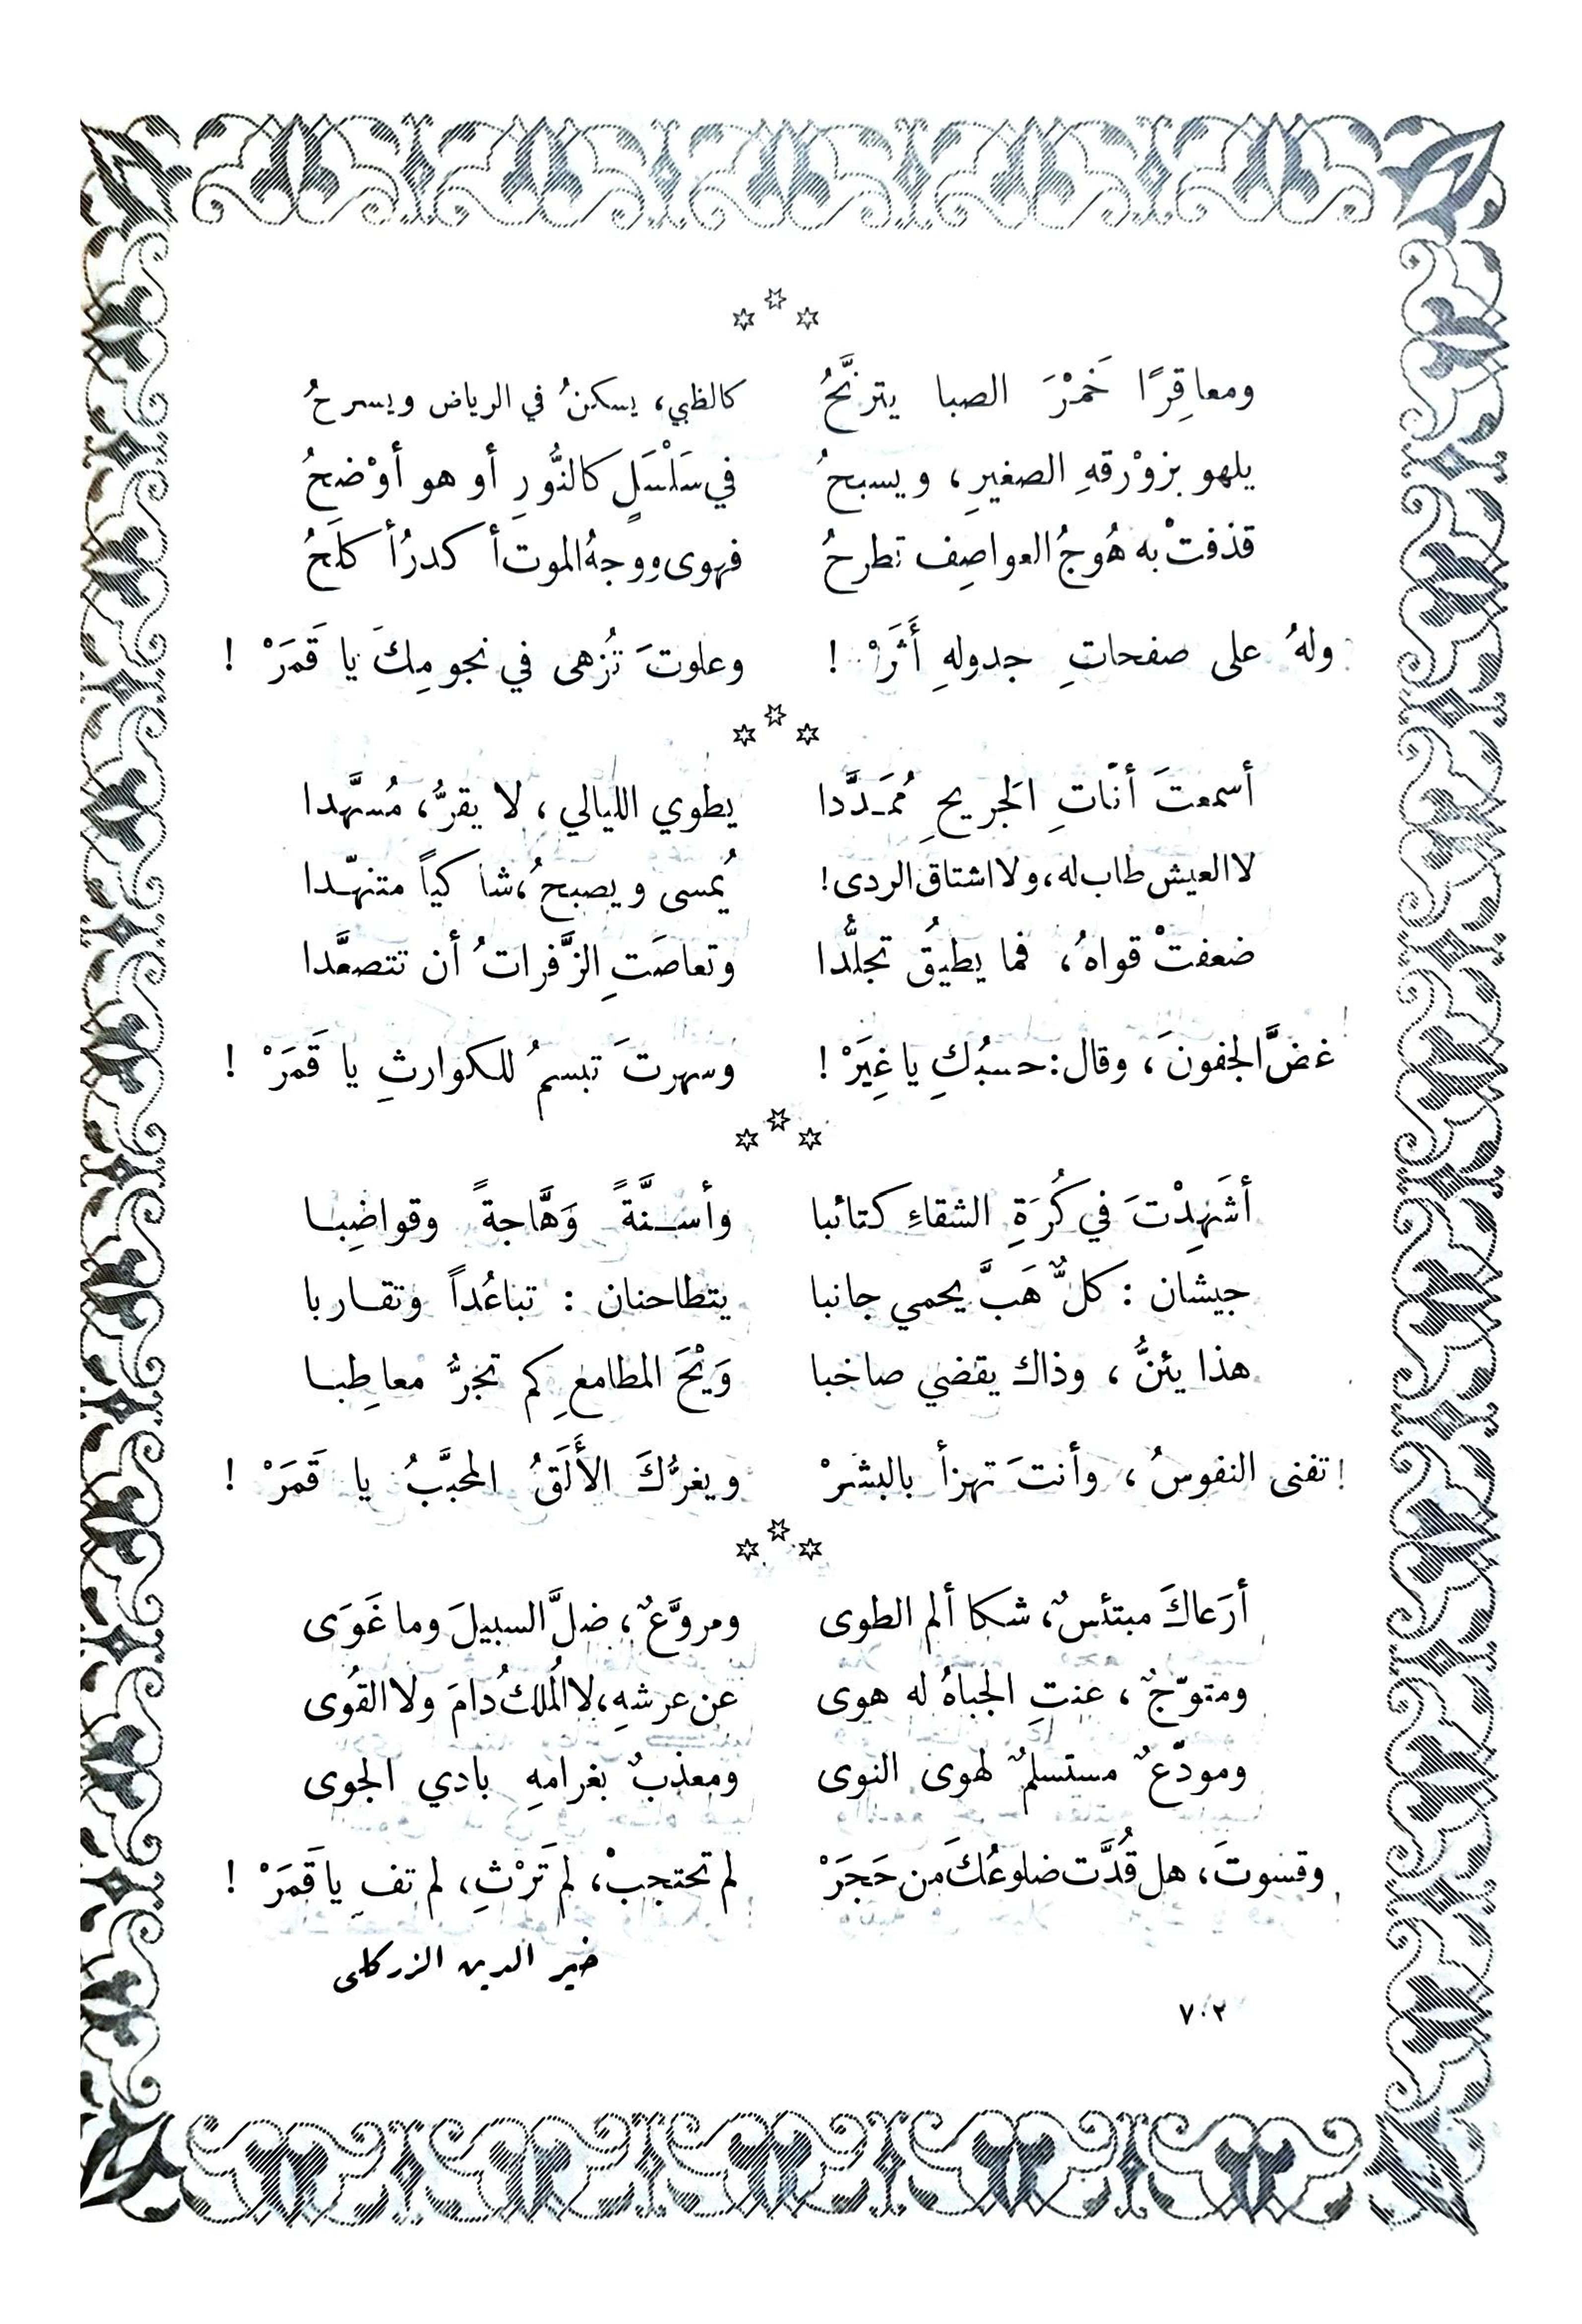 ومعاقِرًا خَمْرَ الصبا يترنَّحُ كالظبي، يسكنُ في الرياض ويسرحُ
يلهو بزوْرقهِ الصغيرِ، ويسبحُ في سَلْسَلٍ كالنُّورِ أو هو أوْضحُ
قذفتْ به هُوجُ العواصِف تطرحُ فهوى ووجهُ الموت أكدرُ أكلَحُ
ولهُ على صفحاتِ جدولهِ أَثَرْ ! وعلوتَ تُزهى في نجومِكَ يا قَمَرْ !
أسمعتَ أنّاتِ الجريحِ مُمَـدَّدا يطوي الليالي، لا يقرُّ، مُسهَّدا
لا العيش طاب له، ولا اشتاق الردى! يُمسى ويصبحُ، شاكياً متنهّدا
ضعفتْ قواهُ، فما يطيقُ تجلُّدا وتعاصَتِ الزَّفراتُ أن تتصعَّدا
غضَّ الجفونَ، وقال: حسبُكِ يا غِيَرْ ! وسهرتَ تبسمُ للكوارثِ يا قَمَرْ !
أشَهِدْتَ في كُرَةِ الشقاءِ كتائبا وأسـنَّةً وَهَّاجةً وقواضِبـا
جيشان : كلٌّ هَبَّ يحمي جانبا يتطاحنان : تباعُداً وتقـاربا
هذا يئنُّ، وذاك يقضي صاخبا وَيْحَ المطامعِ كم تجرُّ معاطِبـا
تفنى النفوسُ، وأنتَ تهزأ بالبشرْ ! ويغرُّكَ الأَلَقُ المحبَّبُ يا قَمَرْ !
أرَعاكَ مبتئسٌ، شكا ألم الطوى ومروَّعٌ، ضلَّ السبيلَ وما غَوَى
ومتوّجٌ، عنتِ الجباهُ له هوى عن عرشهِ، لا المُلكُ دامَ ولا القُوى
ومودّعٌ مستسلمٌ لهوى النوى ومعذبٌ بغرامهِ بادي الجوى
وقسوتَ، هل قُدَّت ضلوعُكَ من حَجَرْ لم تحتجبْ، لم تَرْثِ، لم تفِ يا قَمَرْ !
خير الدين الزركلى
٧٠٢